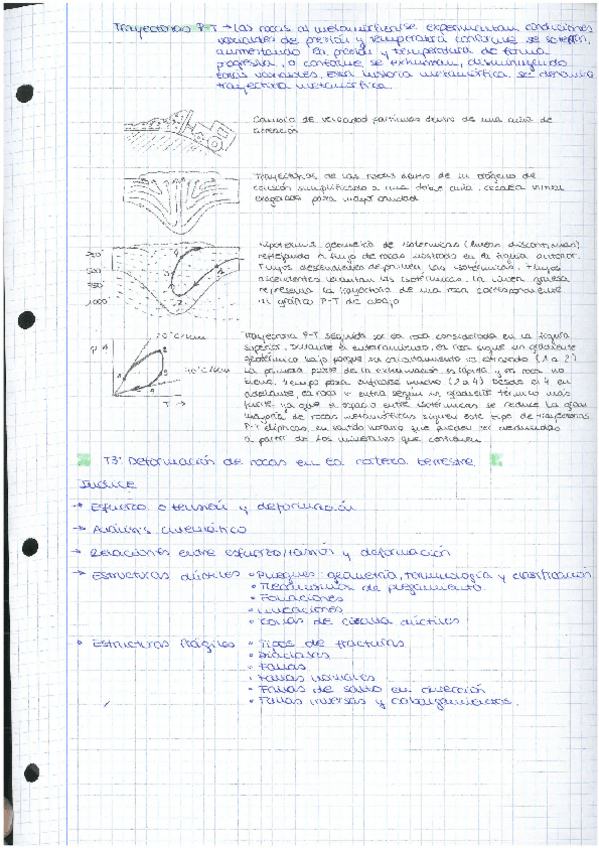 Trayectorias P-T → Las rocas al metamorfizarse experimentan condiciones
variables de presión y temperatura conforme se
aumentando la presión y temperatura de forma
progresiva, o conforme se exhuman, disminuyendo
estas variables, esta historia metamórfica se denomina
trayectoria metamórfica.
Cambio de velocidad partículas dentro de una cuña de
acreción
Trayectorias de las rocas dentro de un orógeno de
colisión simplificado a una doble cuña, escala vertical
exagerada para mayor claridad
Hipotética geometría de isotermas (líneas discontinuas)
reflejando el flujo de rocas mostrado en la figura anterior.
Flujos descendentes deprimen las isotermas, flujos
ascendentes levantan las isotermas. La línea gruesa
representa la trayectoria de una roca correspondiente
al gráfico P-T de abajo
500
1000
10°C/km
P
40°C/km
T →
Trayectoria P-T seguida por la roca considerada en la figura
superior. Durante el enterramiento, la roca sigue un gradiente
geotérmico bajo porque su enterramiento es (1 a 2)
La primera parte de la exhumación es rápida y la roca no
tiene tiempo para enfriarse mucho (2 a 4) Desde el 4 en
adelante, la roca se enfría según un gradiente térmico más
fuerte, ya que el espacio entre isotermas se reduce. La gran
mayoría de rocas metamórficas siguen este tipo de trayectorias
P-T elípticas, en sentido horario que pueden ser
a partir de los minerales que contienen
T3: Deformación de rocas en la corteza terrestre
Índice
→ Esfuerzo o tensión y deformación
→ Análisis cinemático
→ Relaciones entre esfuerzo/tensión y deformación
→ Estructuras dúctiles • Pliegues: geometría, terminología y clasificación
• Mecanismos de plegamiento
• Foliaciones
• Lineaciones
• Zonas de cizalla dúctiles
• Estructuras frágiles • Tipos de fracturas
• Diaclasas
• Fallas
• Fallas normales
• Fallas de salto en dirección
• Fallas inversas y cabalgamientos.